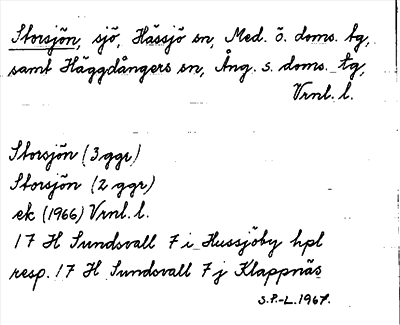 Storsjön, sjö, Hässjö sn, Med. ö. doms. tg,
samt Häggdångers sn, Ång. s. doms. tg,
Vrnl. l.
Storsjön (3 ggr)
Storsjön (2 ggr)
ek (1966) Vrnl. l.
17 H Sundsvall 7 i Hussjöby hpl
resp. 17 H Sundsvall 7 j Klappnäs
S.P.-L. 1967.